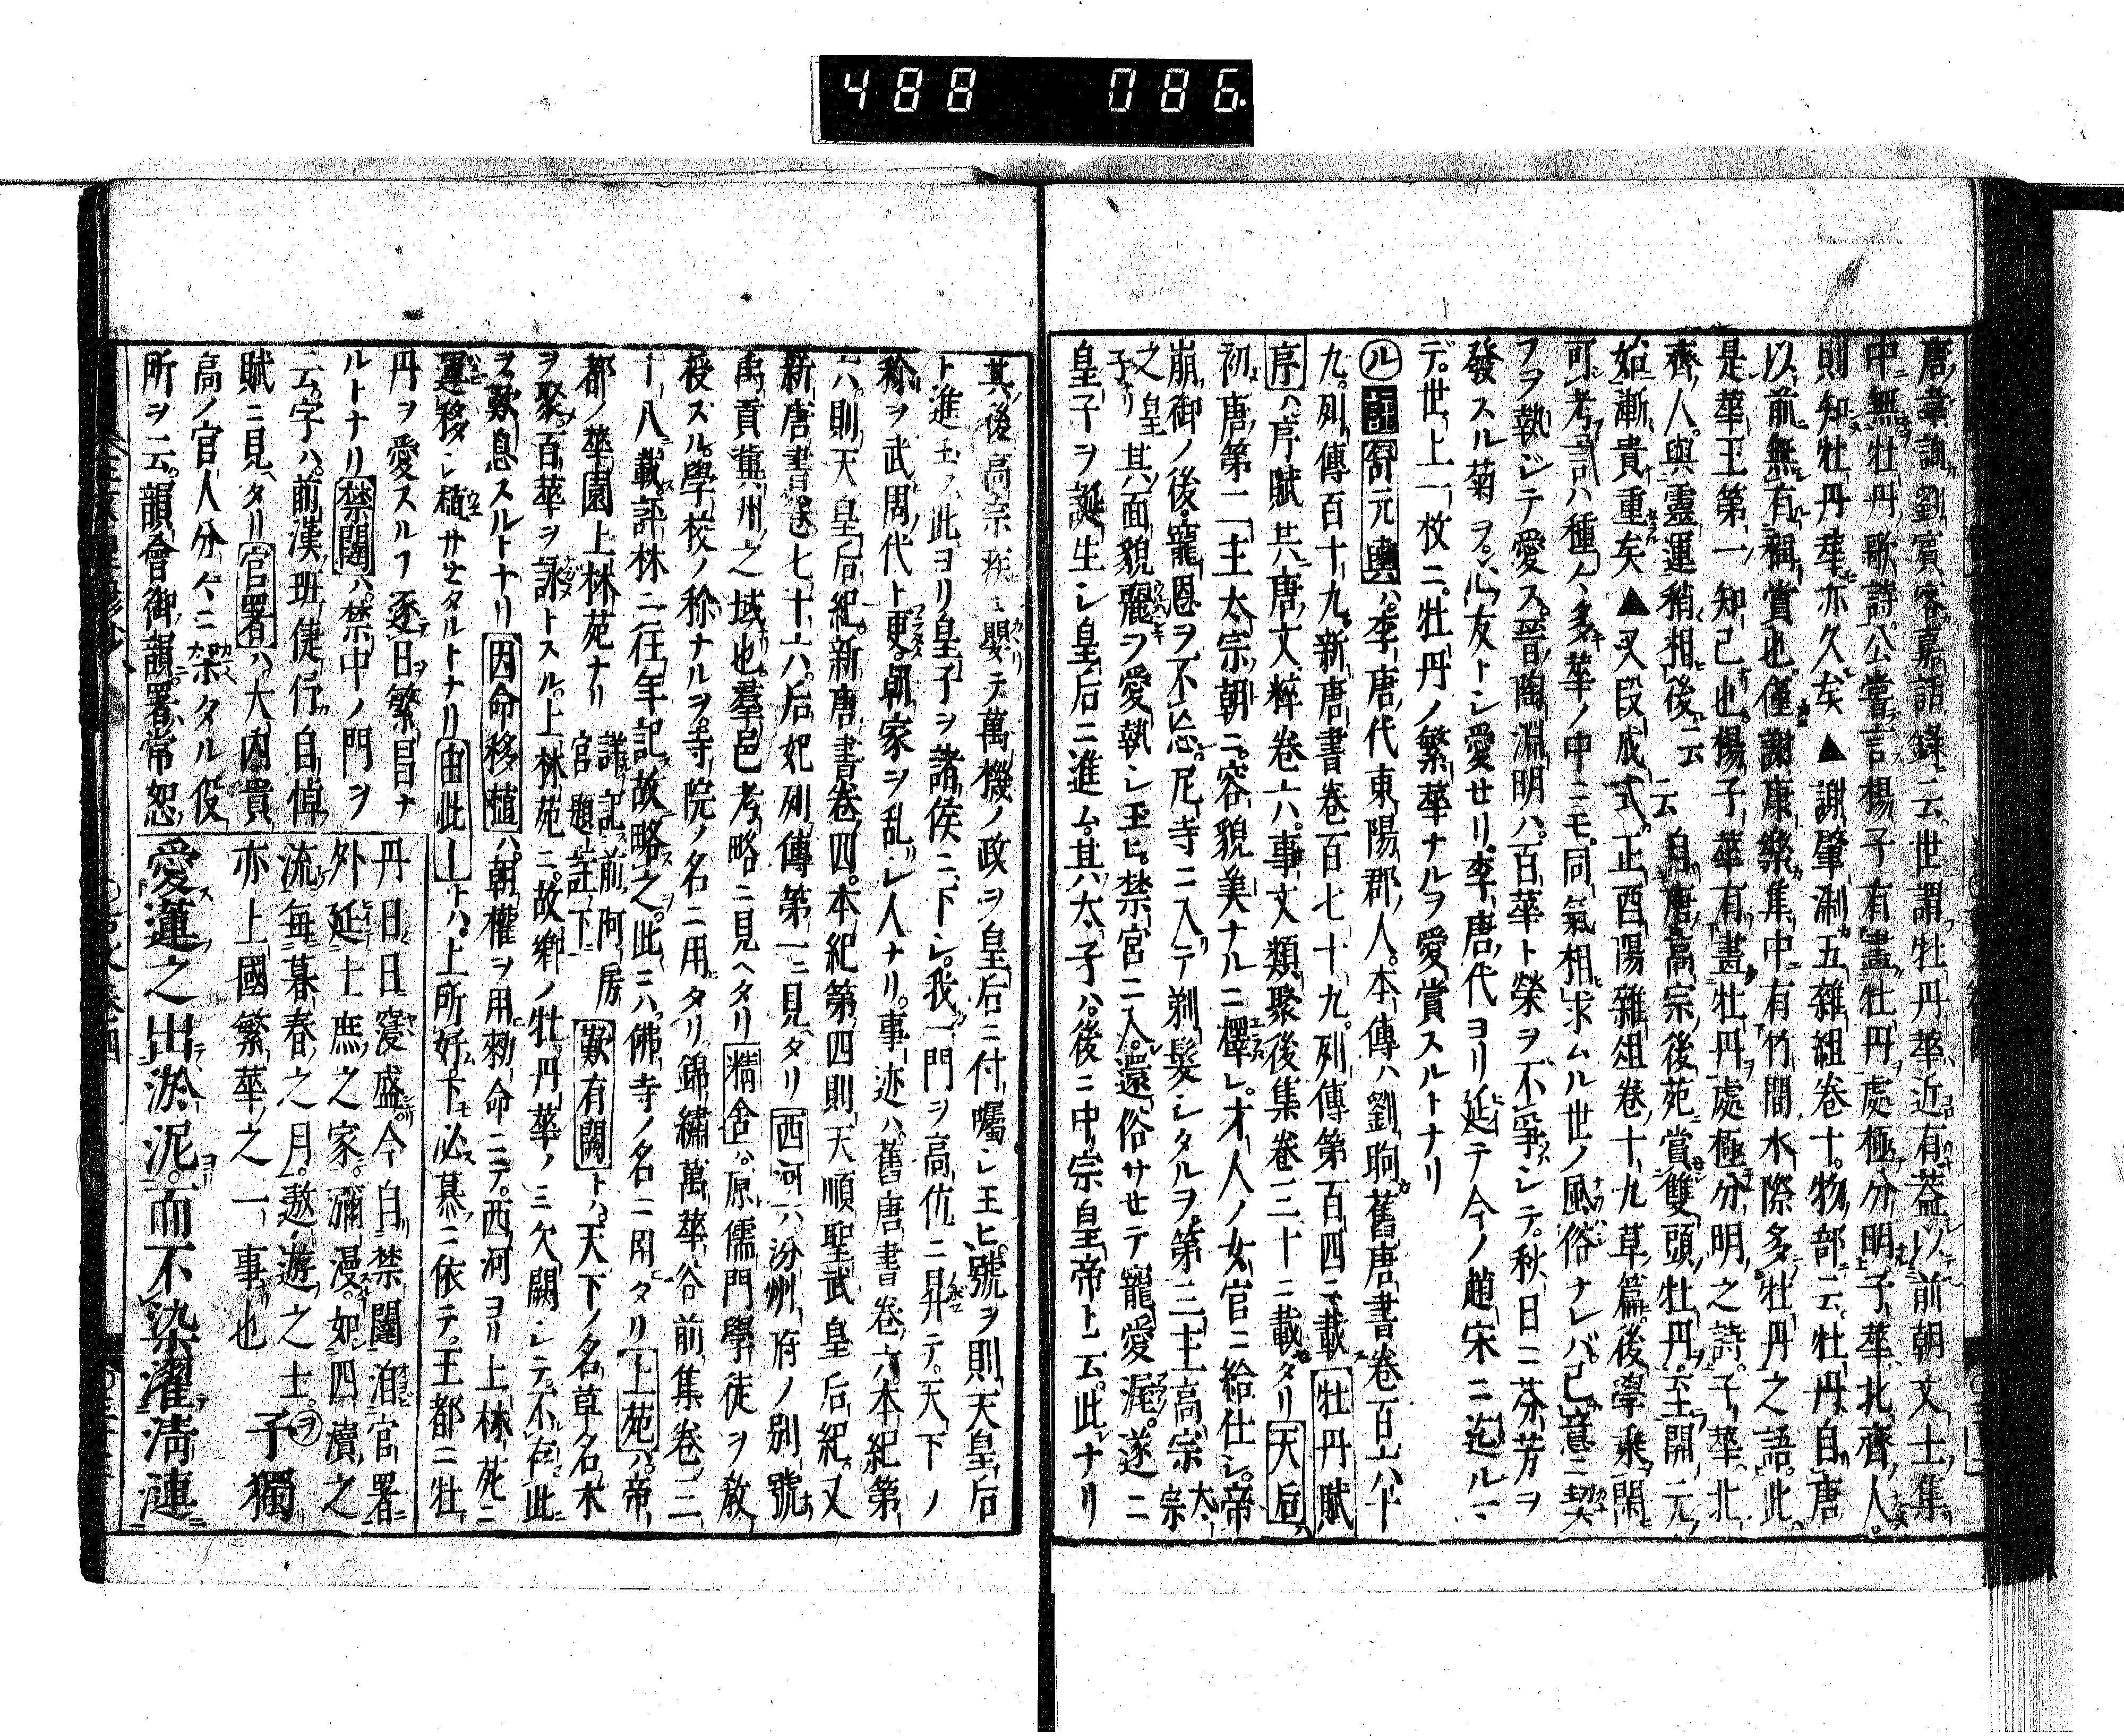 488 086
唐韋詢劉賓客嘉話錄云世謂牡丹華近有蓋以前朝文士集
中無牡丹歌詩公嘗言楊子有畫牡丹處極分明子華北齊人
則知牡丹華亦久矣▲謝肇淛五雜組卷十物部云牡丹自唐
以前無有稱賞也僅謝康樂集中有竹間水際多牡丹之語此
是華王第一知己也楊子華有畫牡丹處極分明之詩子華北
齊人與靈運稍相後云云自唐高宗後苑賞雙頭牡丹至開元
始漸貴重矣▲又段成式酉陽雜俎卷十九草篇後學乘閑
可考言ハ種々多華ノ中ニモ同氣相求ムル世ノ風俗ナレバ己意ニ契
フヲ執ジテ愛ス晉陶淵明ハ百華ト榮ヲ不爭シテ秋日ニ芬芳ヲ
發スル菊ヲ心友トシ愛セリ李唐代ヨリ延テ今ノ趙宋ニ迄ルマ
デ世上一枚ニ牡丹ノ繁華ナルヲ愛賞スルトナリ
ル 註 舒元輿ハ李唐代東陽郡人本傳ハ劉昫舊唐書卷百六十
九列傳百十九新唐書卷百七十九列傳第百四ニ載 牡丹賦
序ハ序賦共唐文粹卷六事文類聚後集卷三十ニ載タリ 天后
初唐第二主太宗朝ニ容貌美ナルニ擇レ才人ノ女官ニ給仕シ帝
崩御ノ後寵恩ヲ不忘尼寺ニ入テ剃髮シタルヲ第三主高宗太宗
之皇子ナリ其面貌麗ヲ愛執シ玉ヒ禁宮ニ入還俗サセテ寵愛渥遂ニ
皇子ヲ誕生シ皇后ニ進ム其太子ハ後ニ中宗皇帝ト云此ナリ
其後高宗疾ニ嬰テ萬機ノ政ヲ皇后ニ付囑シ玉ヒ號ヲ則天皇后
ト進玉フ此ヨリ皇子ヲ諸侯ニ下シ我一門ヲ高位ニ昇テ天下ノ
稱ヲ武周代ト更朝家ヲ乱シ人ナリ事迹ハ舊唐書卷六本紀第
六則天皇后紀新唐書卷四本紀第四則天順聖武皇后紀又
新唐書卷七十六后妃列傳第一ニ見タリ 西河ハ汾州府ノ別號
禹貢冀州之域也羣邑考略ニ見ヘタリ 精舍ハ原儒門學徒ヲ敎
授スル學校ノ稱ナルヲ寺院ノ名ニ用タリ錦繡萬華谷前集卷二
十八載評林ニ往年記故略之此ニハ佛寺ノ名ニ用タリ 上苑ハ帝
都ノ華園上林苑ナリ詳記前阿房宮題註下 歎有闕トハ天下ノ名草名木
ヲ聚百華ヲ詠トスル上林苑ニ故鄉ノ牡丹華ノミ欠闕シテ不在此
ヲ歎息スルトナリ 因命移植ハ朝權ヲ用勅命ニテ西河ヨリ上林苑ニ
運移シ植サセタルトナリ 由此ートハ上所好下必慕ニ依テ王都ニ牡
丹ヲ愛スルフ逐日繁昌ナ
ルトナリ 禁闥ハ禁中ノ門ヲ
云字ハ前漢班倢伃自悼
賦ニ見タリ 官署ハ大内貴
高ノ官人分々ニ架タル役
所ヲ云韻會御韻署常恕
丹日日寖盛今自禁闥洎官署
外延士庶之家瀰漫如四瀆之
流每暮春之月遨遊之士
亦上國繁華之一事也 ヲ 予獨
愛蓮之出淤泥而不染濯淸漣